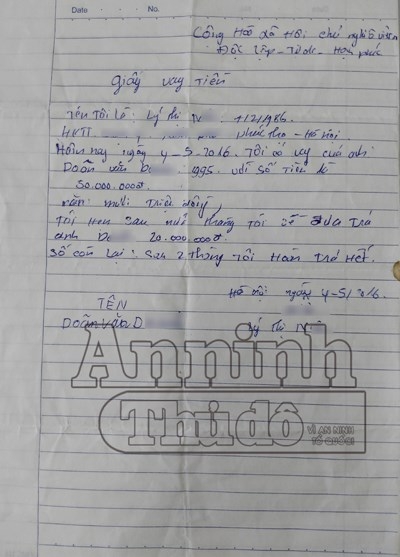 Date No.
Cộng Hoà Xã Hội chủ nghĩa
Độc lập - Tự do - Hạnh phúc
Giấy vay tiền
Tên tôi là: Lý thị 1986.
HKTT Phúc thọ - Hà Nội.
Hôm nay ngày 4-5-2016. Tôi có vay của anh
Doãn văn 1995. với số tiền là
50.000.000đ.
năm mươi triệu đồng,
Tôi hẹn sau một tháng tôi sẽ đưa trả
anh 20.000.000đ.
Số còn lại: sau 2 tháng tôi hoàn trả hết.
Hà Nội ngày 4-5/2016.
TÊN
Doãn Văn D Lý Thị
An ninh
Thủ đô
VÌ AN NINH
TỔ QUỐC!